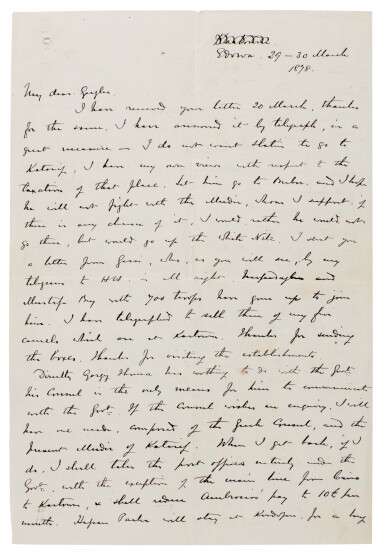 Edowa. 29–30 March
1878.
My dear Giegler
I have received your letter 20 March, thanks
for the same. I have answered it by telegraph, in a
great measure — I do not want Slatin to go to
Katarif, I have my own views with respect to the
taxation of that place. Let him go to Berber, and I hope
he will not fight with the Mudir, whom I support. if
there is any chance of it, I would rather he would not
go there, but would go up the White Nile. I sent you
a letter from Gessi, who, as you will see, by my
telegram to HH. is all right. and
Mustapha Bey with 700 troops have gone up to join
him. I have telegraphed to sell three of my five
camels which are at Kartoum. Thanks for sending
the boxes. Thanks for visiting the establishments.
Dimitri Gorgy has nothing to do with the Govt
his Consul is the only means for him to communicate
with the Govt. If the Consul wishes an enquiry, I will
have one made, composed of the Greek Consul, and the
present Mudir of Katarif. When I get back, if I
do, I shall take the post offices entirely under the
Govt. with the exception of the main line from Cairo
to Kartoum, & shall reduce Ambrosio's pay to 10£ per
month. Hassan Pasha will stay at Kordofan for a long